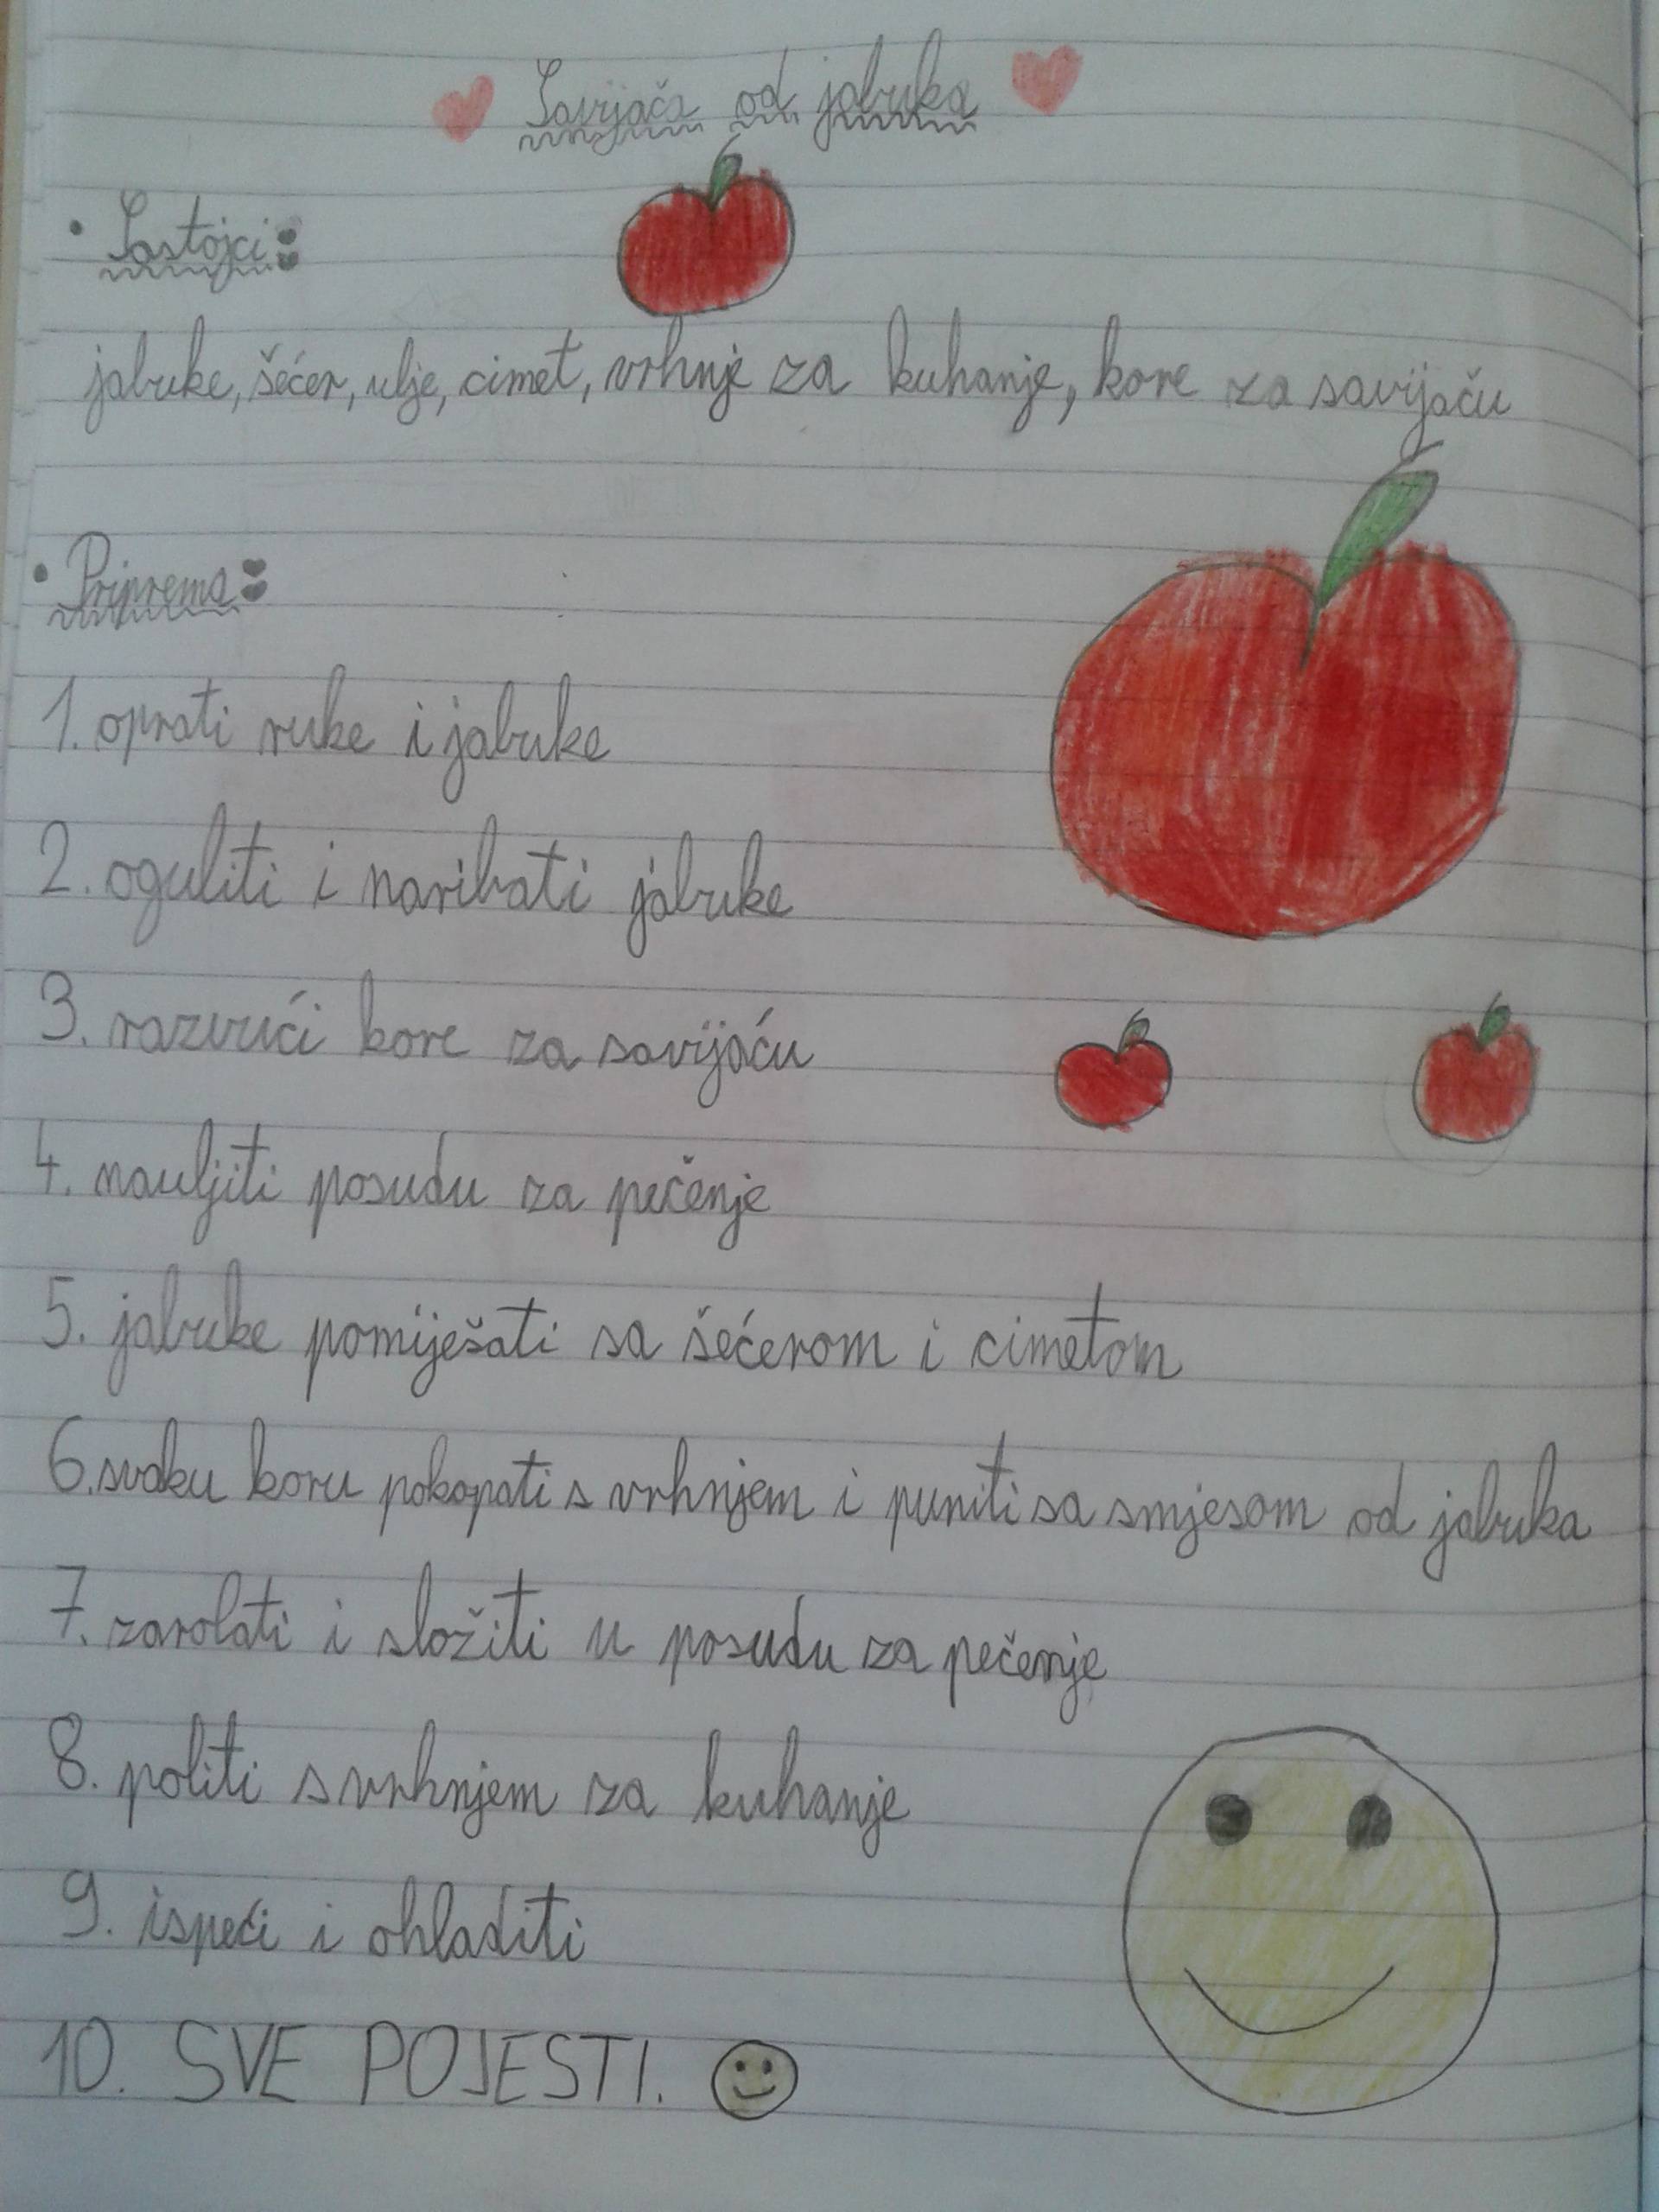 Savijača od jabuka
• Sastojci:
jabuke, šećer, ulje, cimet, vrhnje za kuhanje, kore za savijaču
• Priprema:
1. oprati ruke i jabuke
2. oguliti i naribati jabuke
3. razvući kore za savijaću
4. nauljiti posudu za pečenje
5. jabuke pomiješati sa šećerom i cimetom
6. svaku koru pokapati s vrhnjem i puniti sa smjesom od jabuka
7. zarolati i složiti u posudu za pečenje
8. politi s vrhnjem za kuhanje
9. ispeći i ohladiti
10. SVE POJESTI.